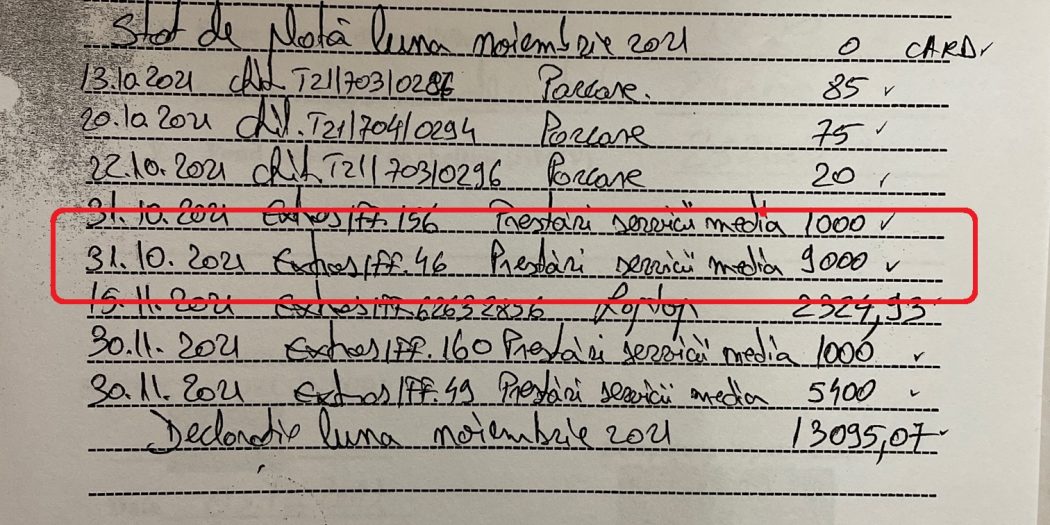 Stat de plată luna noiembrie 2021 0 CARD
13.10.2021 chit. T21/703/0286 Parcare. 85
20.10.2021 chit. T21/704/0294 Parcare 75
22.10.2021 chit. T21/703/0296 Parcare 20
31.10.2021 Extras/ff.156 Prestări servicii media 1000
31.10.2021 Extras/ff.46 Prestări servicii media 9000
15.11.2021 extras/ff. 62632856 Laptop 2324,93
30.11.2021 Extras/ff.160 Prestări servicii media 1000
30.11.2021 extras/ff.49 Prestări servicii media 5400
Declarație luna noiembrie 2021 13095,07